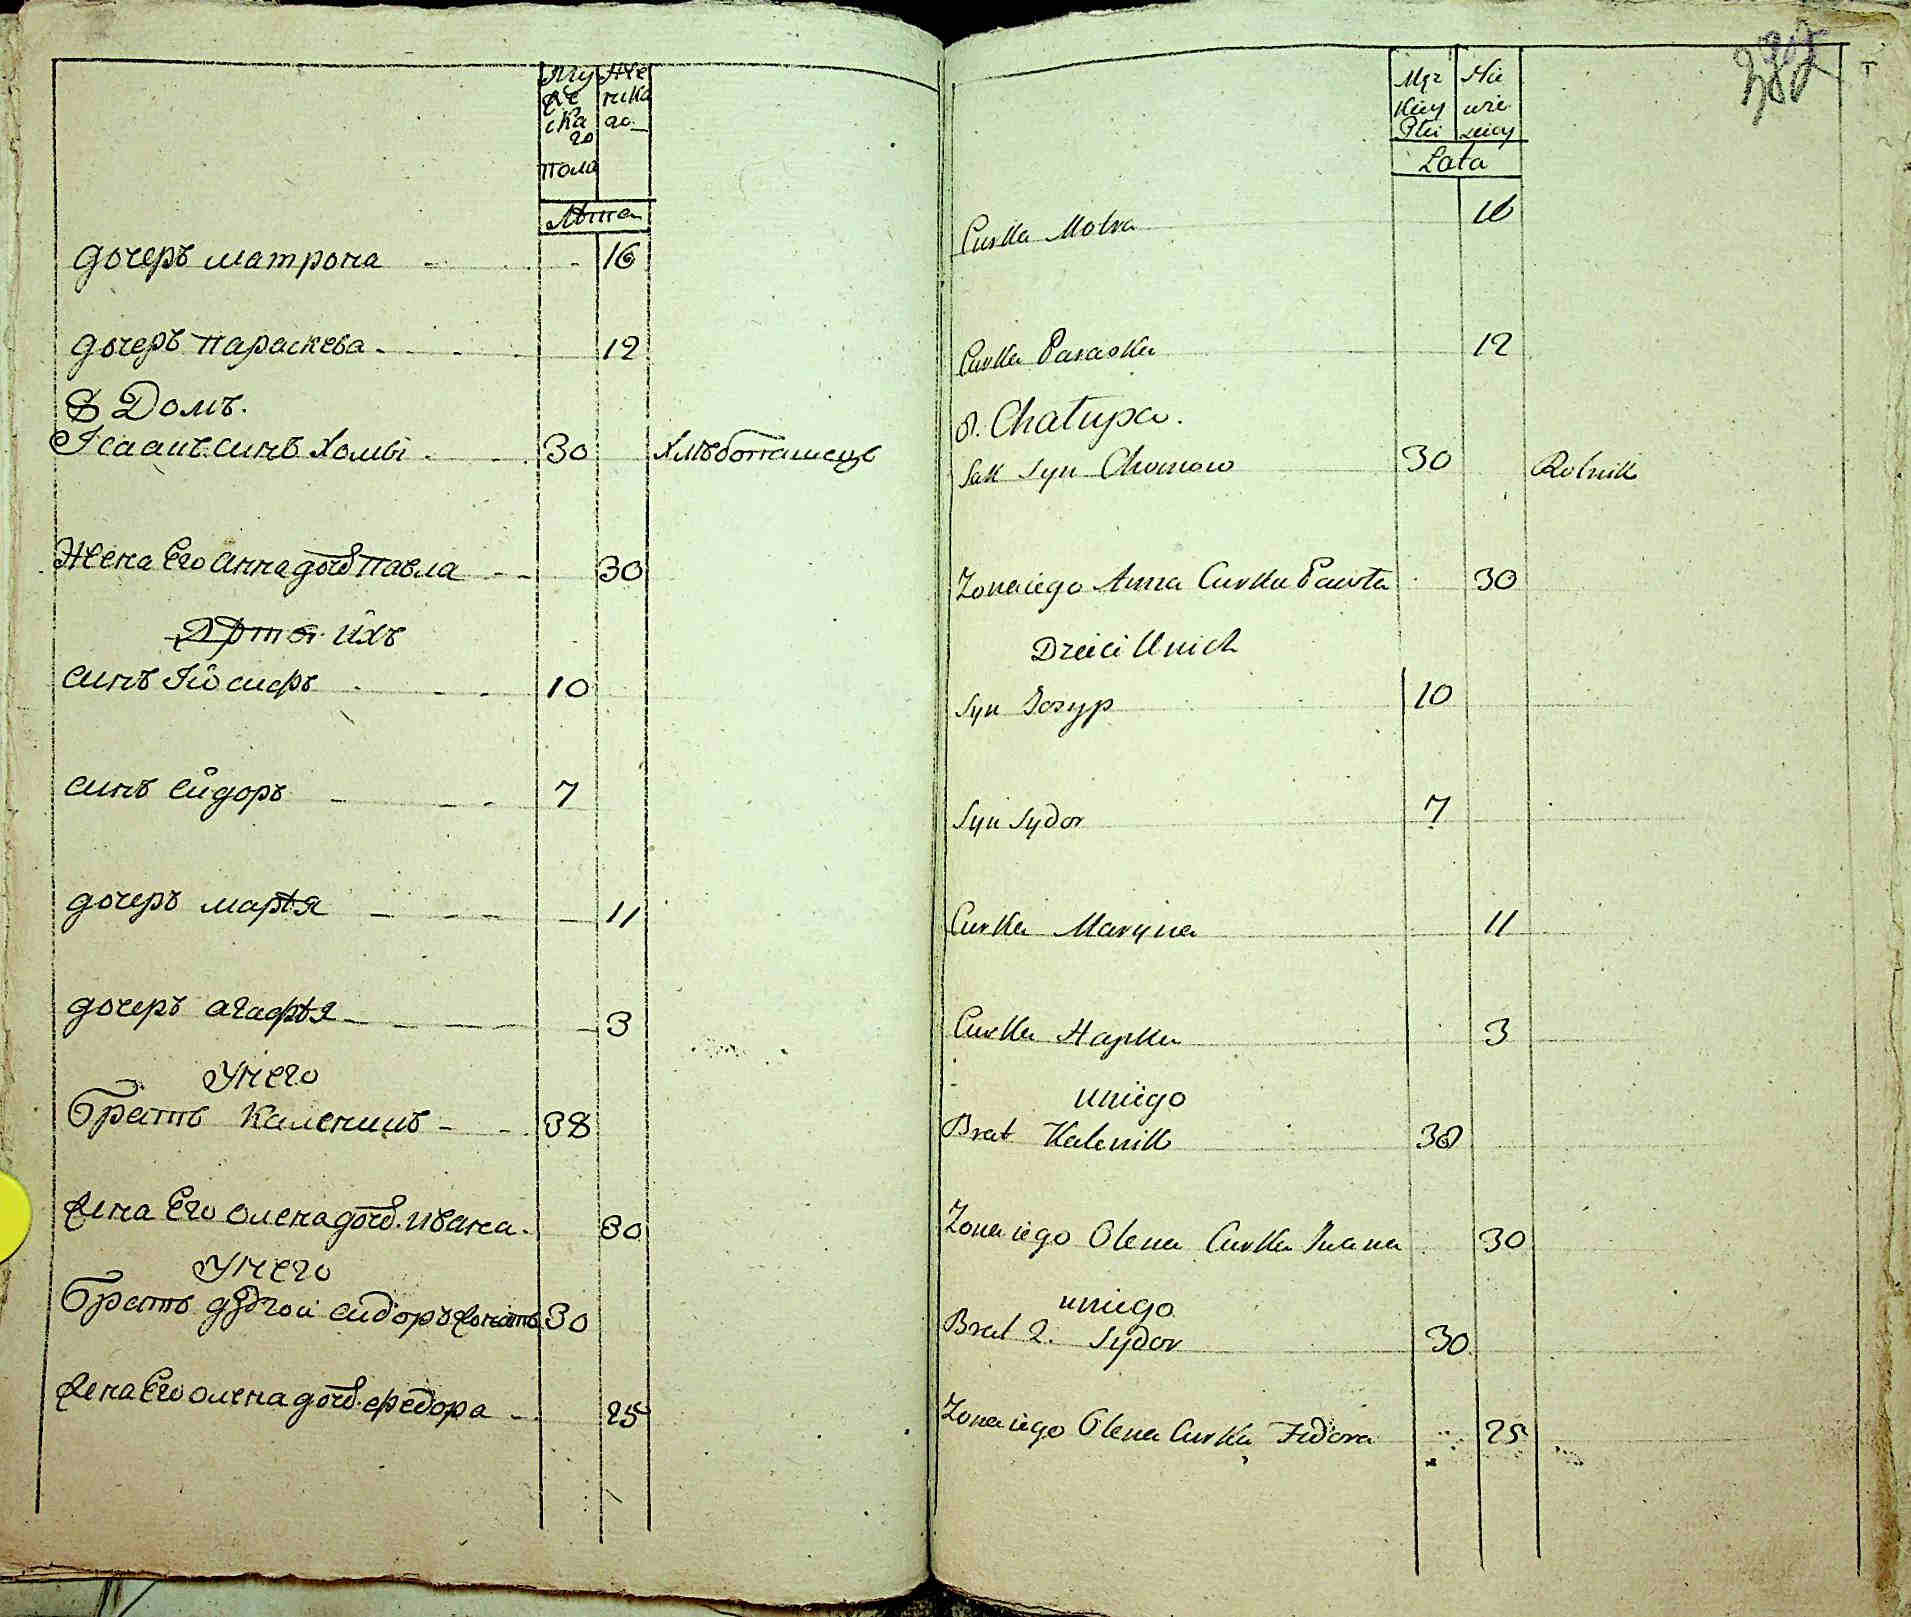 Му
же
ска
го
пола
Же
нска
го
Лѣта
дочеръ матрона 16
дочеръ параскева 12
8 Домъ.
Ісаакъ синъ Хомы 30 Хлѣбопашецъ
Жена Его анна дочь павла 30
Дѣти ихъ
синъ Іосифъ 10
синъ сидоръ 7
дочеръ марья 11
дочеръ агафья 3
У него
братъ каленикъ 38
жена Его олена дочь ивана 30
У него
братъ другой сидоръ 30
жена Его олена дочь федора 25
Męz
kiey
Płci
Nie
wie
sciey
Lata
Curka Motra 16
Curka Paraska 12
8. Chałupa.
Sak Syn Chomow 30 Rolnik
Zona iego Anna Curka Pawła 30
Dzieci U nich
Syn Iosyp 10
Syn Sydor 7
Curka Maryna 11
Curka Hapka 3
u niego
Brat Kalenik 38
Zona iego Olena Curka Iwana 30
u niego
Brat 2. Sydor 30
Zona iego Olena Curka Fedora 25